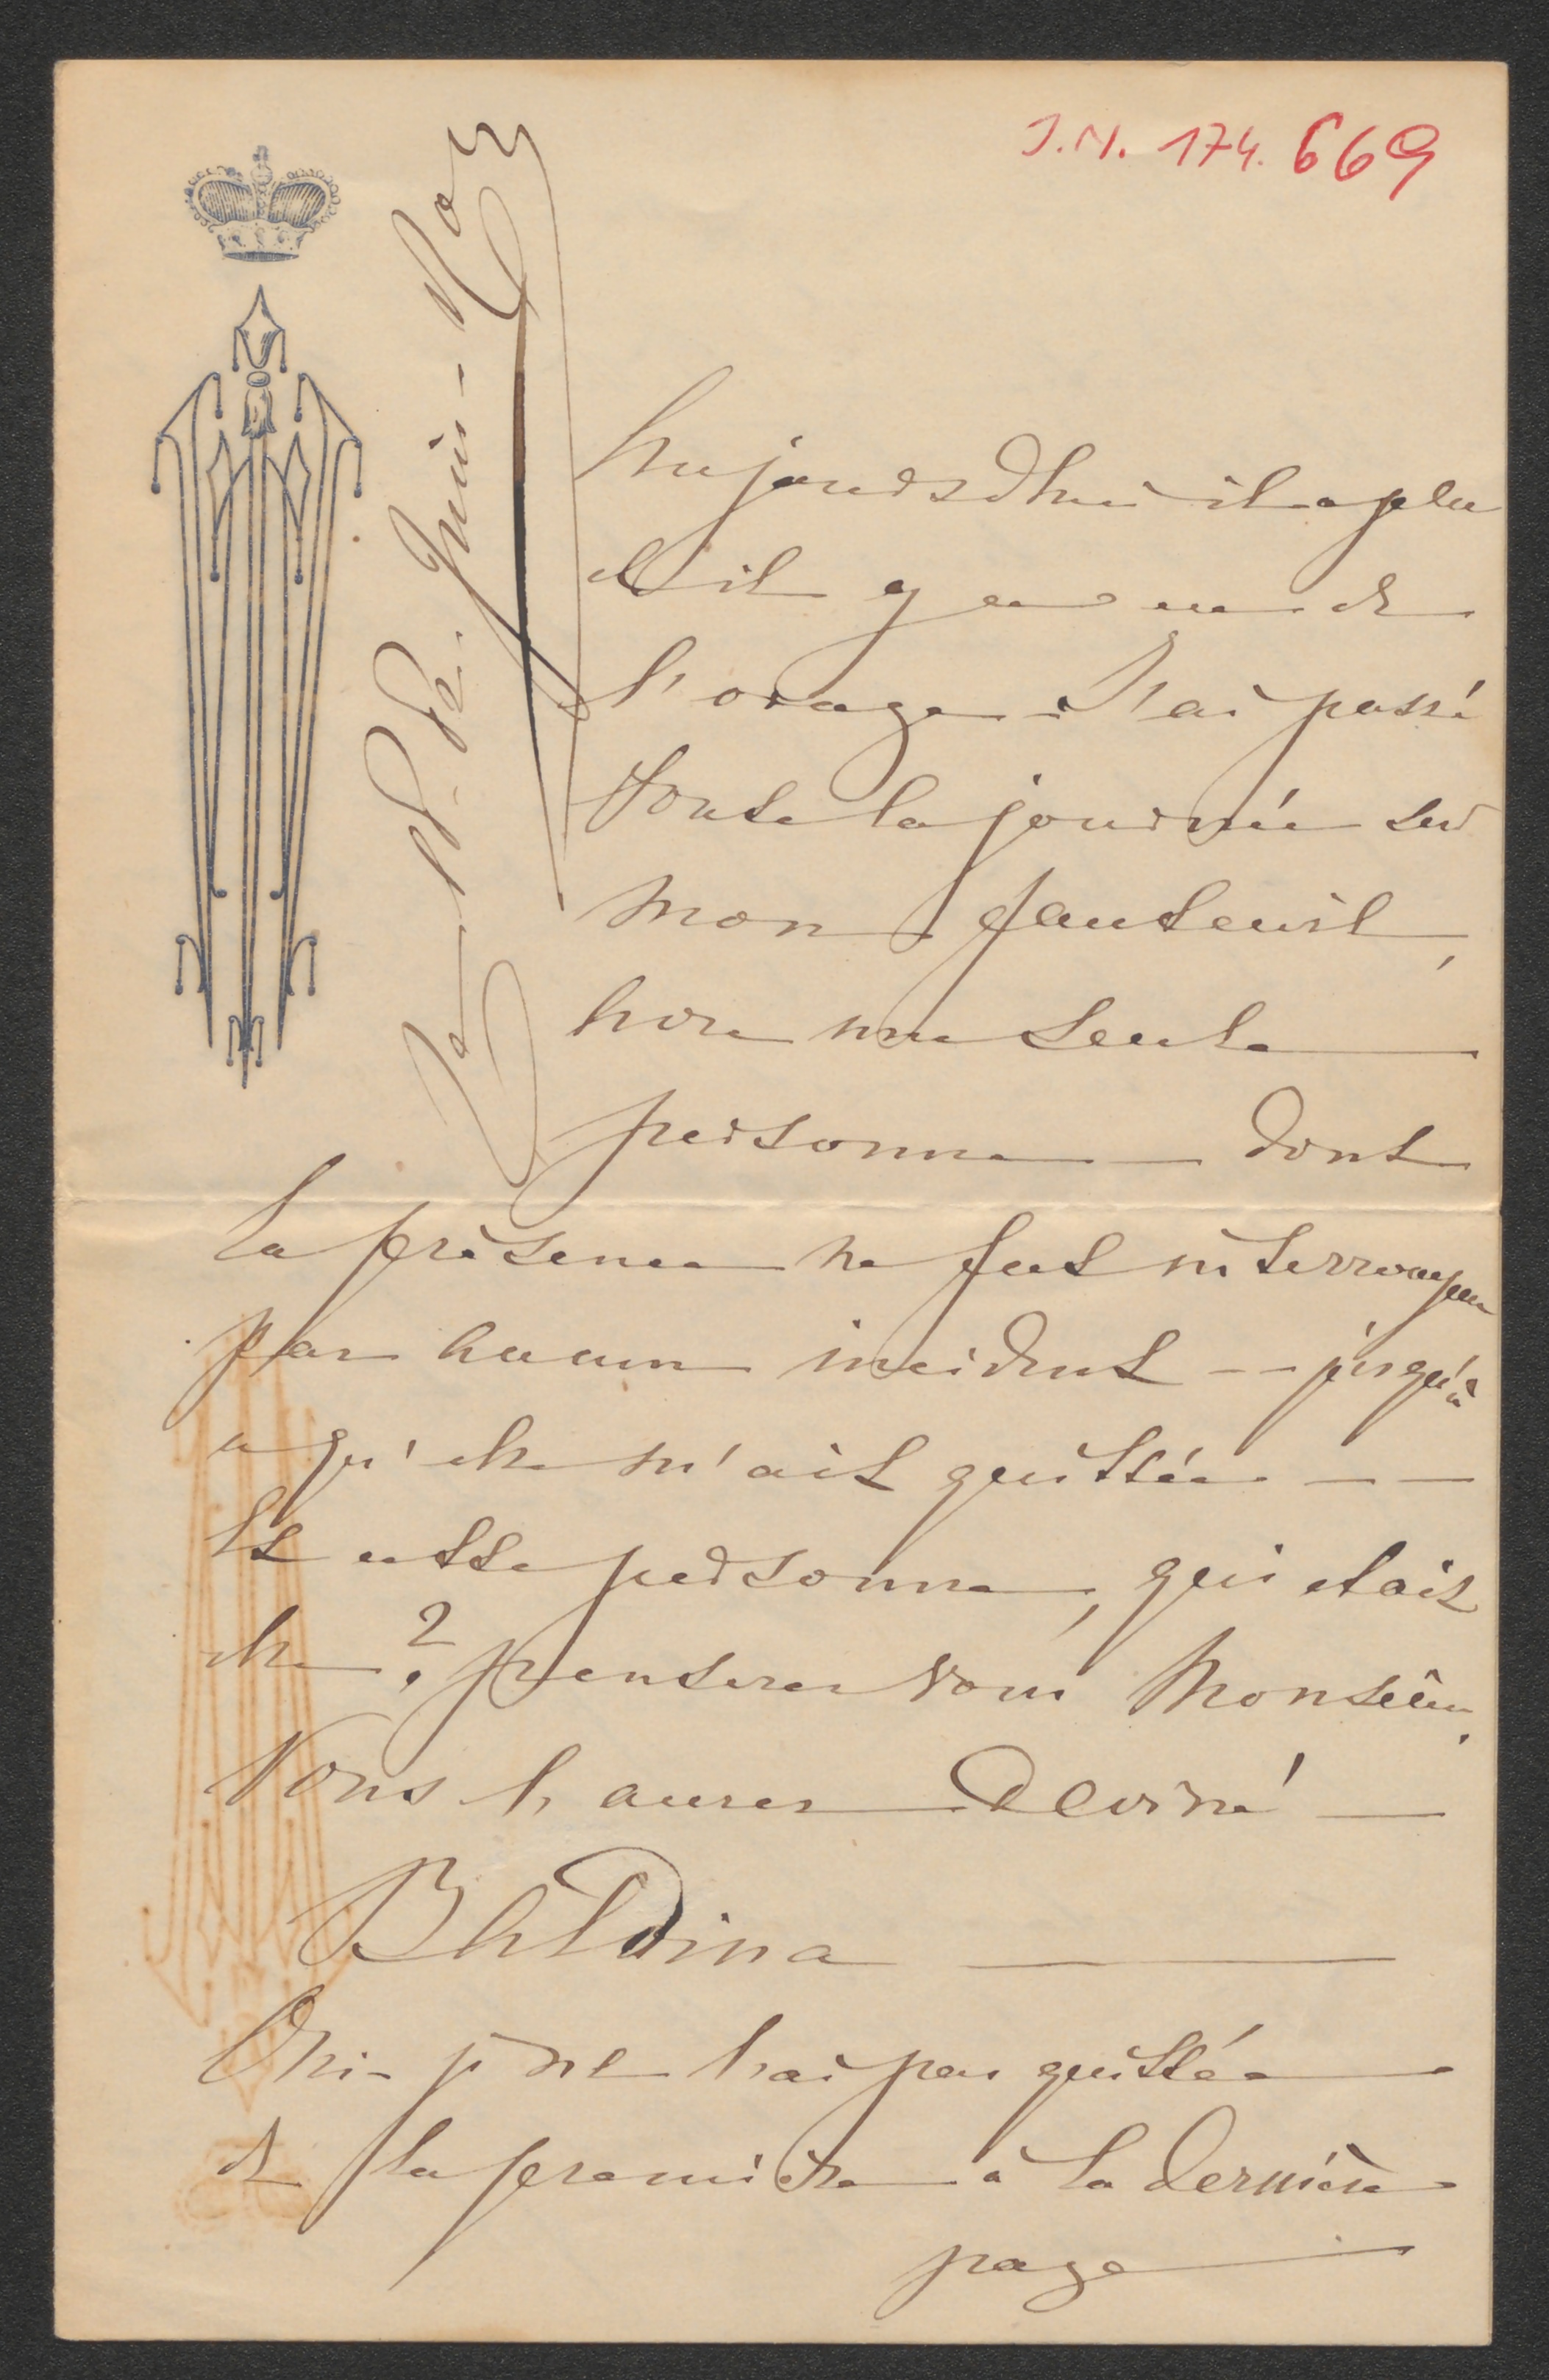 J.N. 174.669
Juin
Aujourdshui il a plu
et il y a eu de
l'orage. J'ai passé
toute la journée sur
mon fauteuil,
avec une seule
personne dont
la présence ne fut interrompue
par aucun incident -- jusqu'à
ce qu'elle m'ait quittée --
Et cette personne, qui etait
elle? penserez vous Monsieur.
Vous l'aurez deviné —
Bhldina —
Oui - je ne l'ai pas quittée
de la première à la dernière
page —